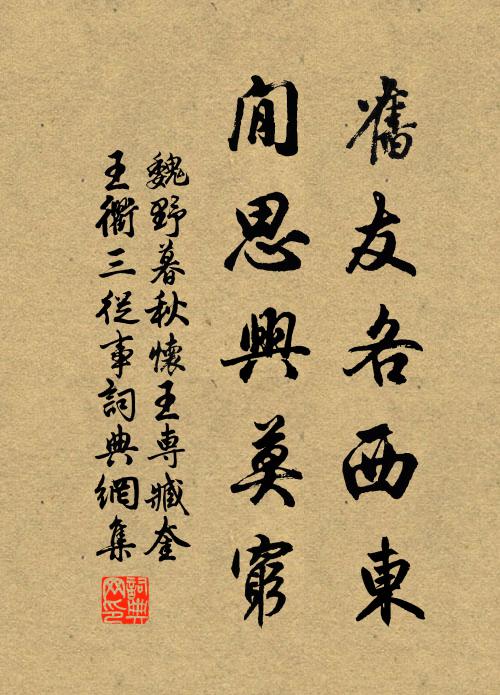 舊友各西東
閒思興莫窮
魏野暮秋懷王專臧奎
王衢三從事詞典網集
詞典網印